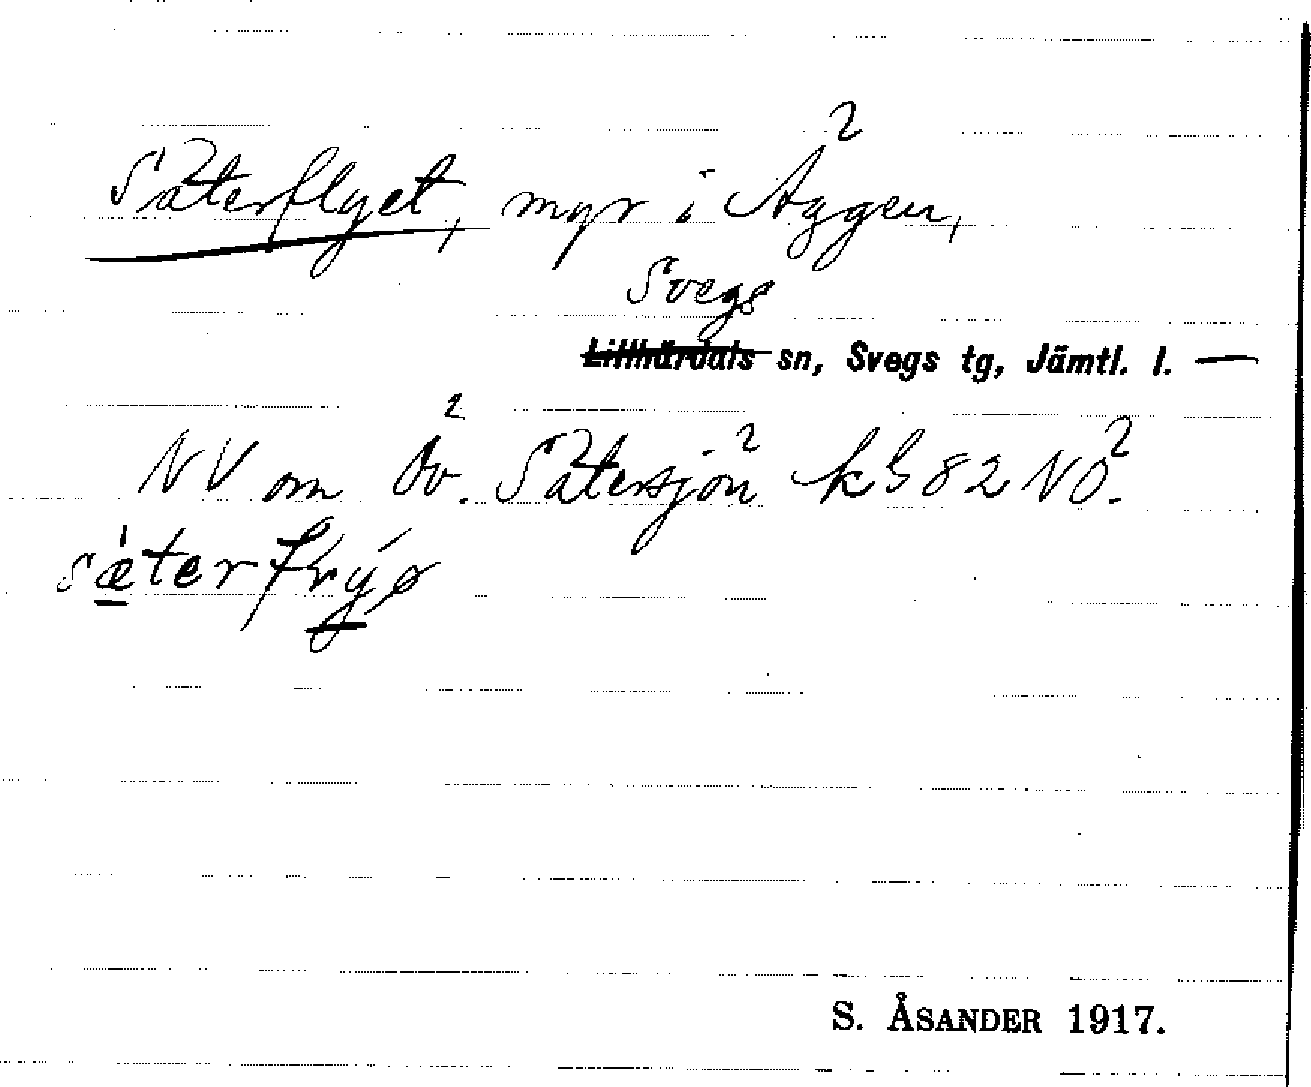 Säterflyet, myr i Äggen,
Svegs
Lillhärdals sn, Svegs tg, Jämtl. l. —
NV om Öv. Sätersjön kb 82 NÖ.
sæterfrýə
S. ÅSANDER 1917.